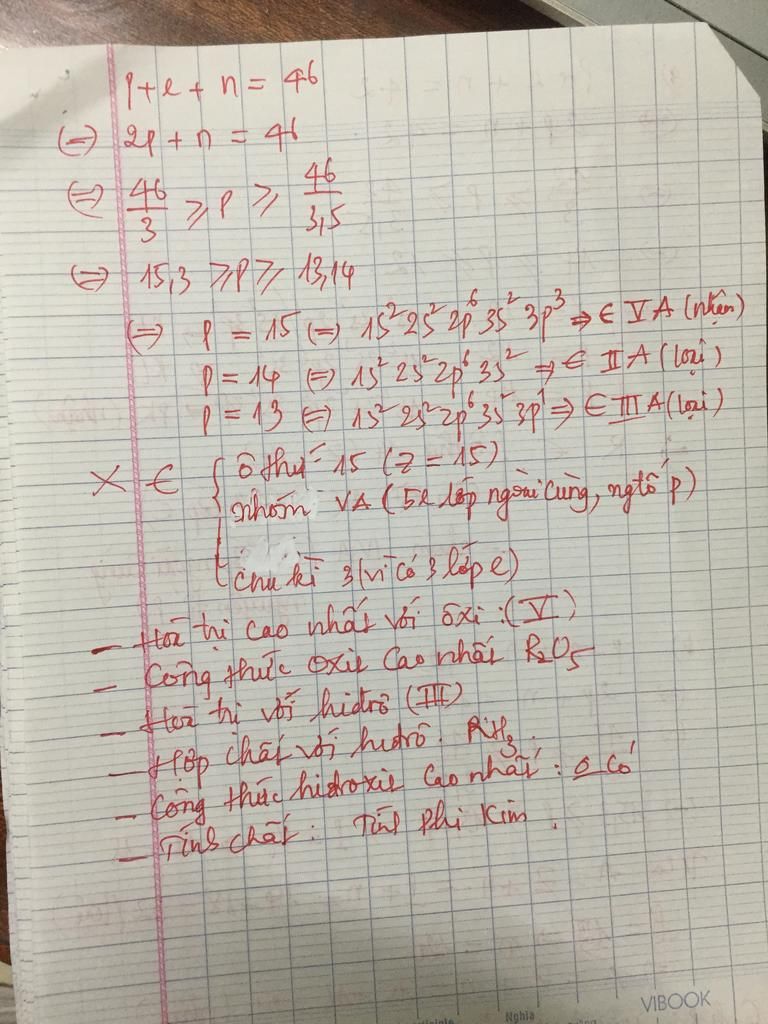 p+e+n = 46
(=) 2p+n = 46
(=) 46/3 ⩾ p ⩾ 46/3,5
(=) 15,3 ⩾p⩾ 13,14
(=) p = 15 (=) 1s² 2s² 2p⁶ 3s² 3p³ => ∈ VA (nhận)
p = 14 (=) 1s² 2s² 2p⁶ 3s² => ∈ IIA (loại)
p = 13 (=) 1s² 2s² 2p⁶ 3s² 3p¹ => ∈ IIIA (loại)
X ∈ { ô thứ 15 (Z = 15)
nhóm VA (5e lớp ngoài cùng, ngtố p)
chu kì 3 (vì có 3 lớp e)
- Hoá trị cao nhất với ôxi : (V)
- Công thức oxit cao nhất R₂O₅
- Hoá trị với hiđrô (III)
- Hợp chất với hiđrô. RH₃.
- Công thức hiđroxit cao nhất : o có
- Tính chất : Tính phi kim.
VIBOOK
Nghĩa